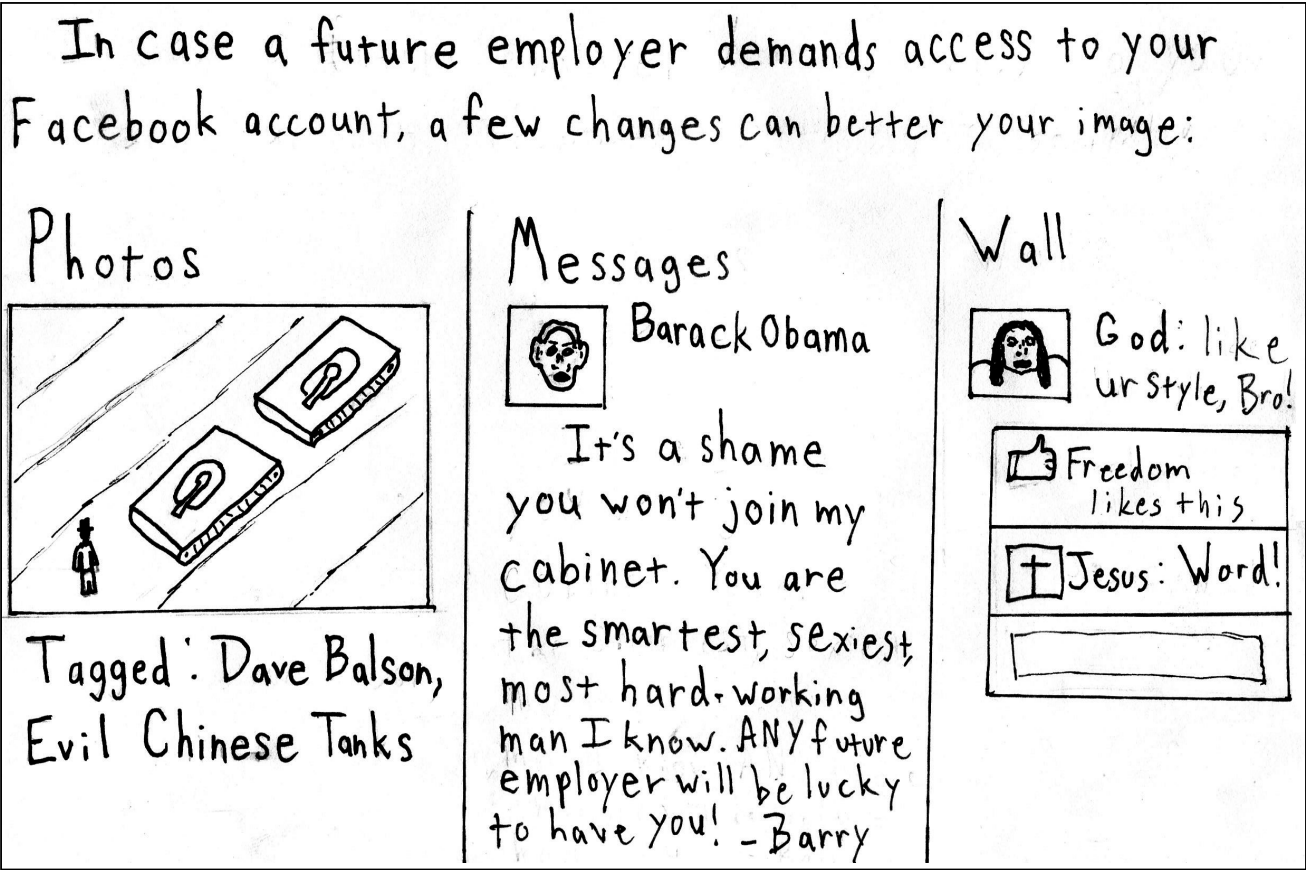 In case a future employer demands access to your
Facebook account, a few changes can better your image:
Photos
Tagged: Dave Balson,
Evil Chinese Tanks
Messages
Barack Obama
It's a shame
you won't join my
cabinet. You are
the smartest, sexiest,
most hard-working
man I know. ANY future
employer will be lucky
to have you! -Barry
Wall
God: like
ur style, Bro!
Freedom
likes this
Jesus: Word!